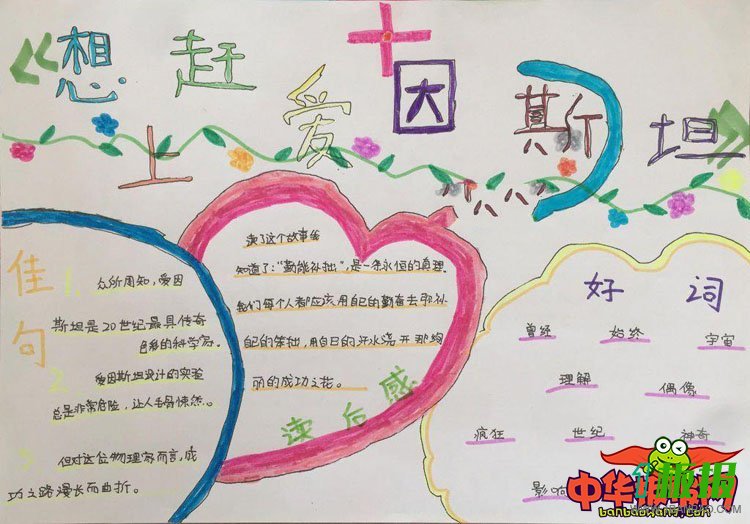 《想赶上爱因斯坦》
佳句
1、众所周知，爱因
斯坦是20世纪最具传奇
色彩的科学家。
2、爱因斯坦设计的实验
总是非常危险，让人毛骨悚然。
3、但对这位物理家而言，成
功之路漫长而曲折。
读了这个故事我
知道了：“勤能补拙”，是一条永恒的真理。
我们每个人都应该用自己的勤奋去弥补
自己的笨拙，用自己的汗水浇开那绚
丽的成功之花。
读后感
好词
曾经 始终 宇宙
理解 偶像
疯狂 世纪 神奇
影响
中华 报网
趣报
banbaowang.com